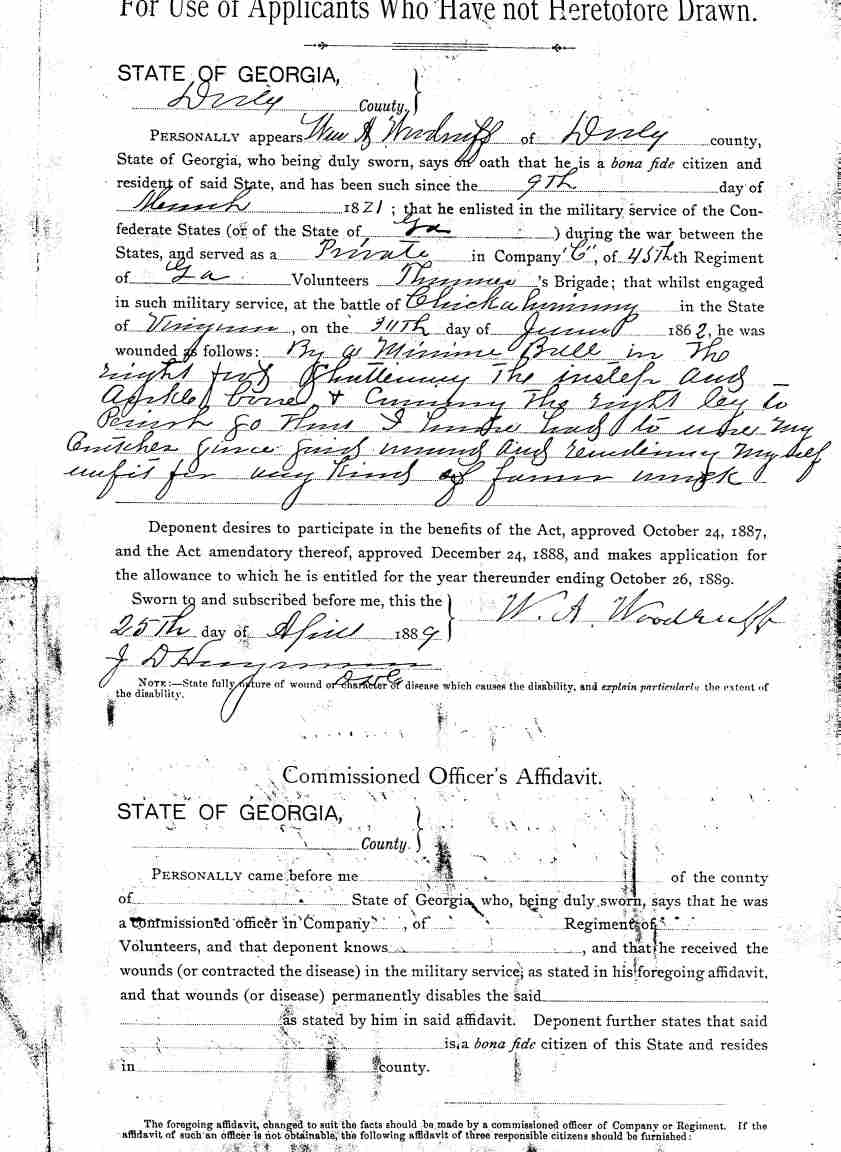 For Use of Applicants Who Have not Heretofore Drawn.
STATE OF GEORGIA,
Dooly County,
PERSONALLY appears Wm A Woodruff of Dooly county,
State of Georgia, who being duly sworn, says on oath that he is a bona fide citizen and
resident of said State, and has been such since the 9th day of
March 1821; that he enlisted in the military service of the Con-
federate States (or of the State of Ga ) during the war between the
States, and served as a Private in Company "C", of 45Th th Regiment
of Ga Volunteers Thomas 's Brigade; that whilst engaged
in such military service, at the battle of Chickahominy in the State
of Virginia, on the 30Th day of June 1862, he was
wounded as follows: By a Minnie Ball in The
right foot Shattering The instep and
Ankle bone & Causing The right leg to
Perish so That I have had to use my
Crutches since said wound and rendering Myself
unfit for any Kind of farm work
Deponent desires to participate in the benefits of the Act, approved October 24, 1887,
and the Act amendatory thereof, approved December 24, 1888, and makes application for
the allowance to which he is entitled for the year thereunder ending October 26, 1889.
Sworn to and subscribed before me, this the
25Th day of April 1889
W. A. Woodruff
J D
NOTE:—State fully nature of wound or character of disease which causes the disability, and explain particularly the extent of
the disability.
Commissioned Officer's Affidavit.
STATE OF GEORGIA,
County.
PERSONALLY came before me of the county
of State of Georgia, who, being duly sworn, says that he was
a commissioned officer in Company , of Regiment of
Volunteers, and that deponent knows , and that he received the
wounds (or contracted the disease) in the military service, as stated in his foregoing affidavit,
and that wounds (or disease) permanently disables the said
as stated by him in said affidavit. Deponent further states that said
is a bona fide citizen of this State and resides
in county.
The foregoing affidavit, changed to suit the facts should be made by a commissioned officer of Company or Regiment. If the
affidavit of such an officer is not obtainable, the following affidavit of three responsible citizens should be furnished: